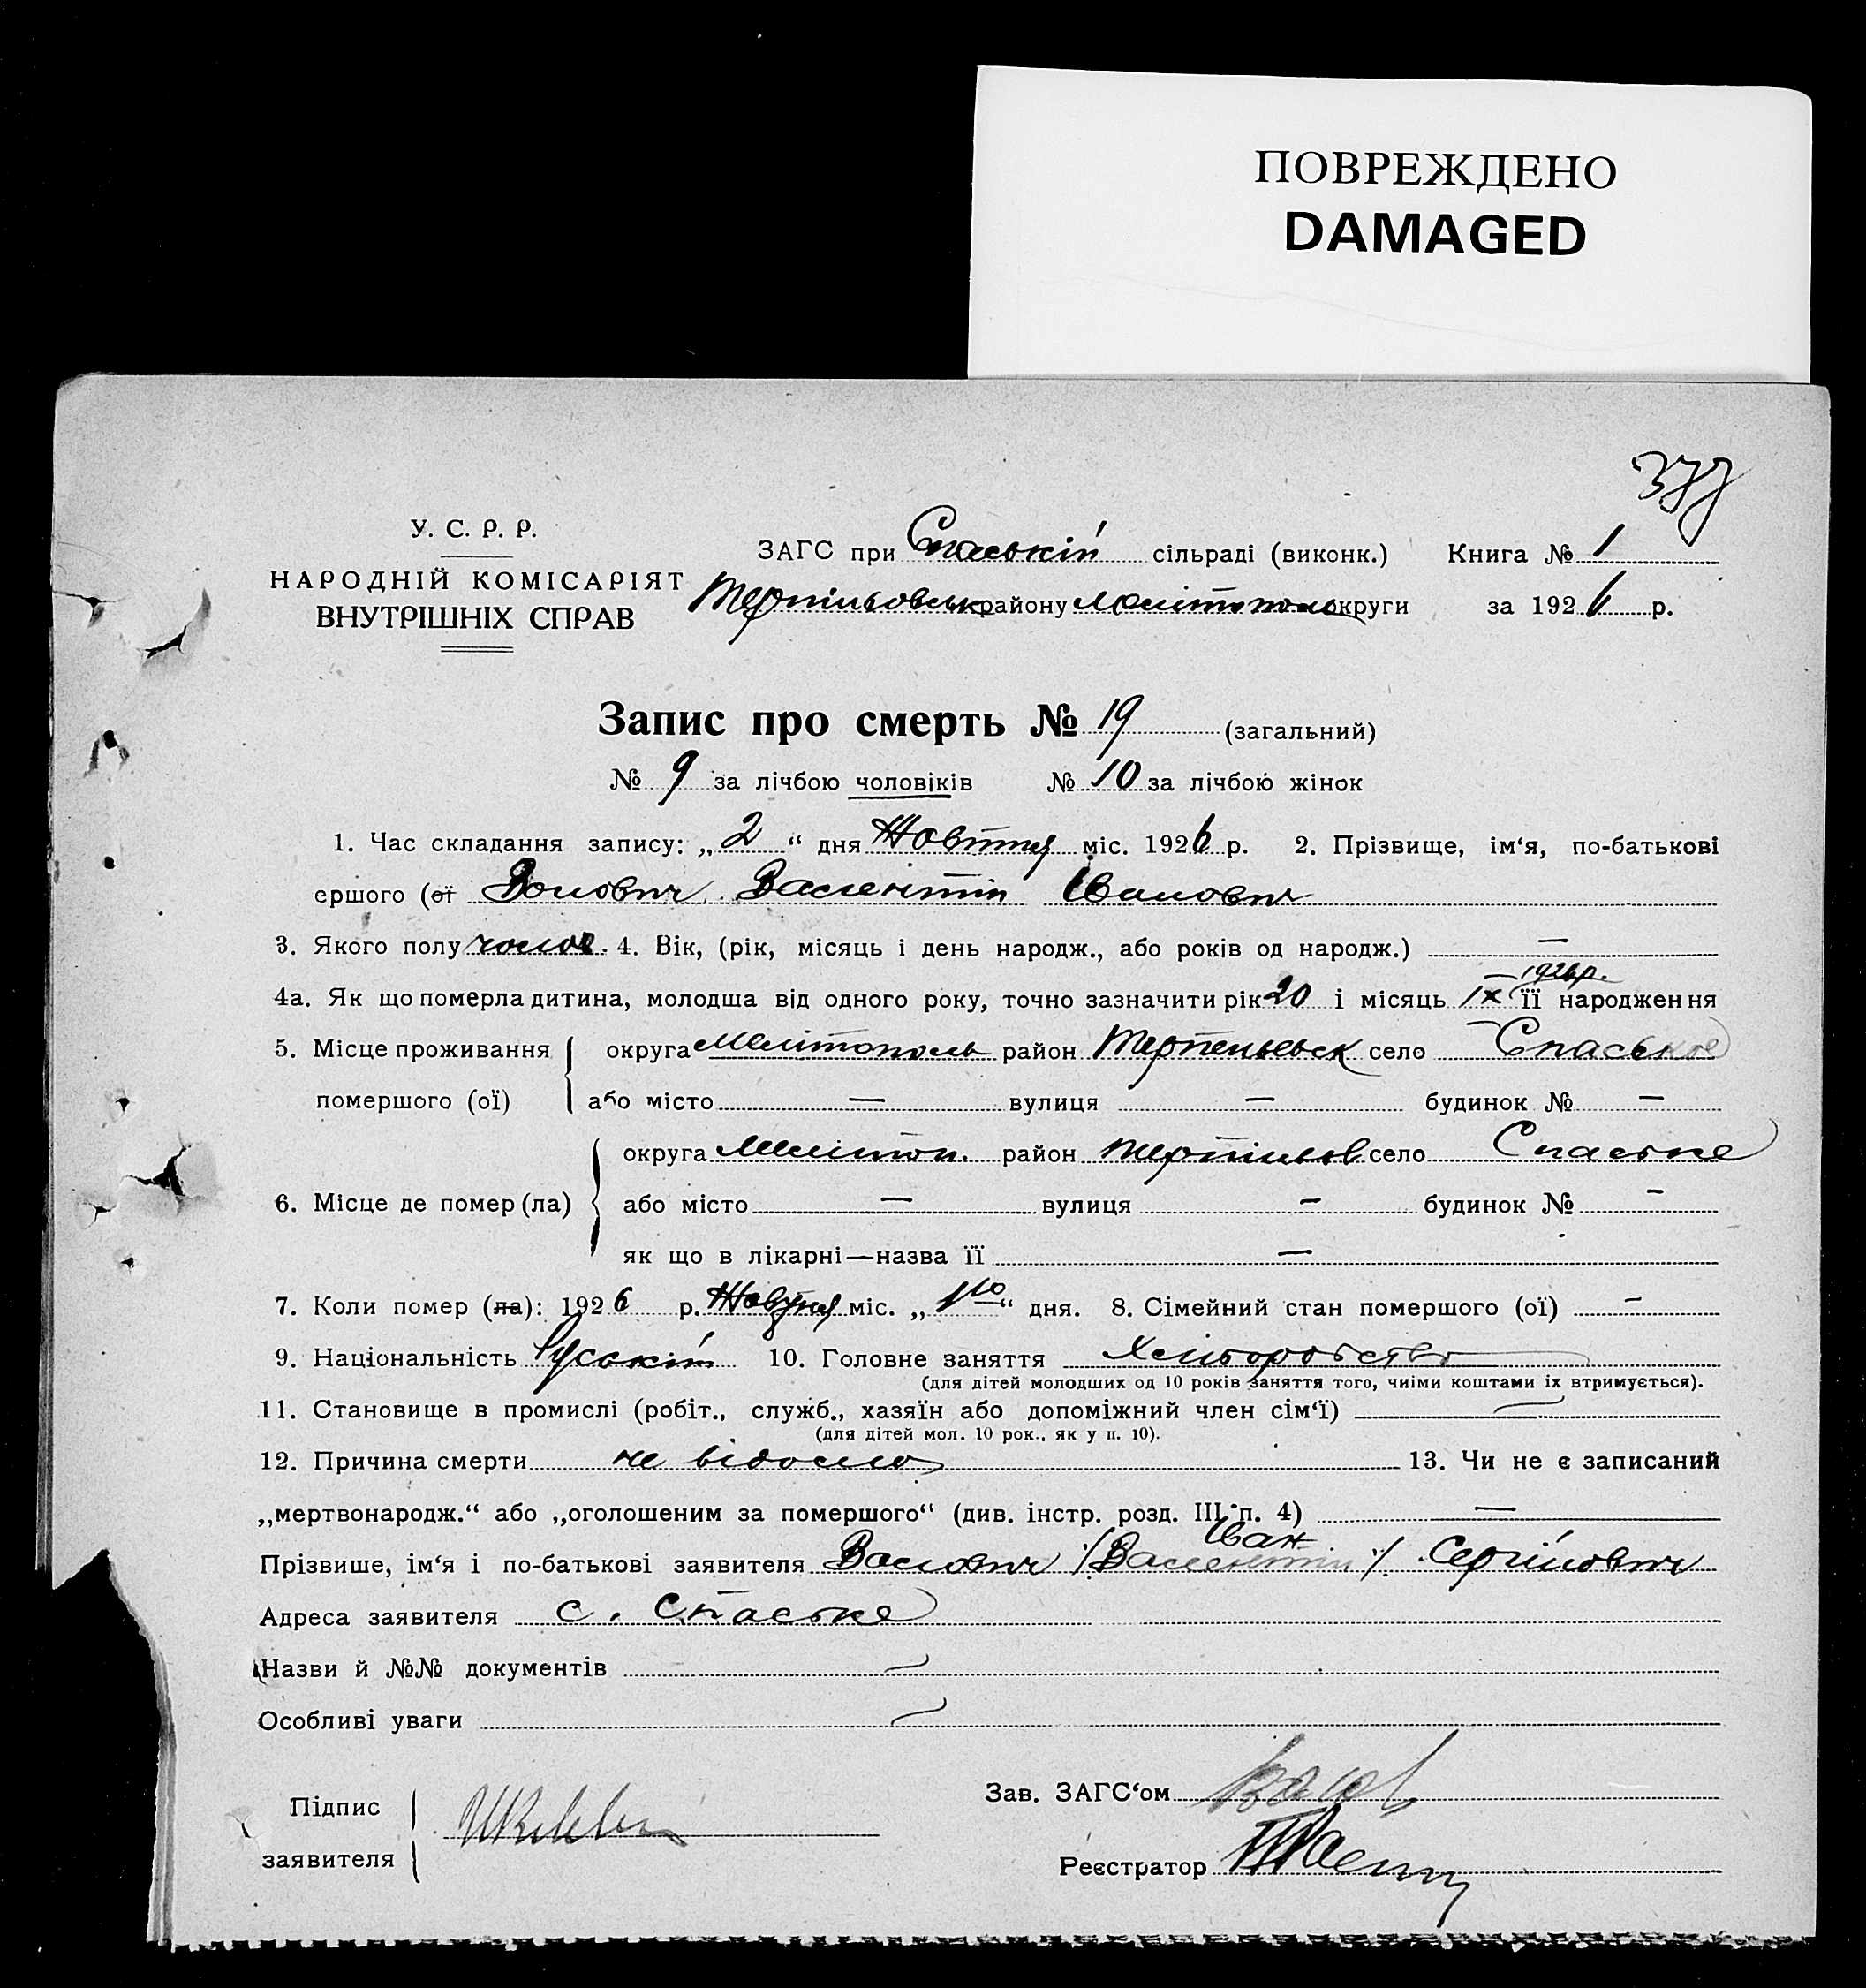 ПОВРЕЖДЕНО
DAMAGED
377
У. С. Р. Р.
НАРОДНІЙ КОМІСАРІЯТ
ВНУТРІШНІХ СПРАВ
ЗАГС при Спаській сільраді (виконк.) Книга № 1
Терпіньовськ району Мелітополь округи за 1926 р.
Запис про смерть № 19 (загальний)
№ 9 за лічбою чоловіків № 10 за лічбою жінок
1. Час складання запису: „2“ дня Жовтня міс. 1926 р. 2. Прізвище, ім‘я, по-батькові
ершого (ої Валентін Іванович
3. Якого полу чолов. 4. Вік, (рік, місяць і день народж., або років од народж.) —
1926р.
4а. Як що померла дитина, молодша від одного року, точно зазначити рік 20 і місяць IX її народження
5. Місце проживання округа Мелітополь район Терпеньевск село Спаськое
помершого (ої) або місто — вулиця — будинок № —
округа Мелітоп. район Терпіньов село Спаське
6. Місце де помер (ла) або місто — вулиця — будинок № —
як що в лікарні—назва її —
7. Коли помер (ла): 1926 р. Жовтня міс. „1го“ дня. 8. Сімейний стан помершого (ої) —
9. Національність Руській 10. Головне заняття Хліборобство
(для дітей молодших од 10 років заняття того, чиїми коштами їх втримується).
11. Становище в промислі (робіт., служб., хазяїн або допоміжний член сім‘ї) —
(для дітей мол. 10 рок., як у п. 10).
12. Причина смерти не відомо 13. Чи не є записаний
„мертвонародж.“ або „оголошеним за помершого“ (див. інстр. розд. III п. 4) —
Іван
Прізвише, ім‘я і по-батькові заявителя /Валентін/ Сергійович
Адреса заявителя с. Спаське
Назви й №№ документів —
Особливі уваги —
Підпис
заявителя
Зав. ЗАГС‘ом
Реєстратор